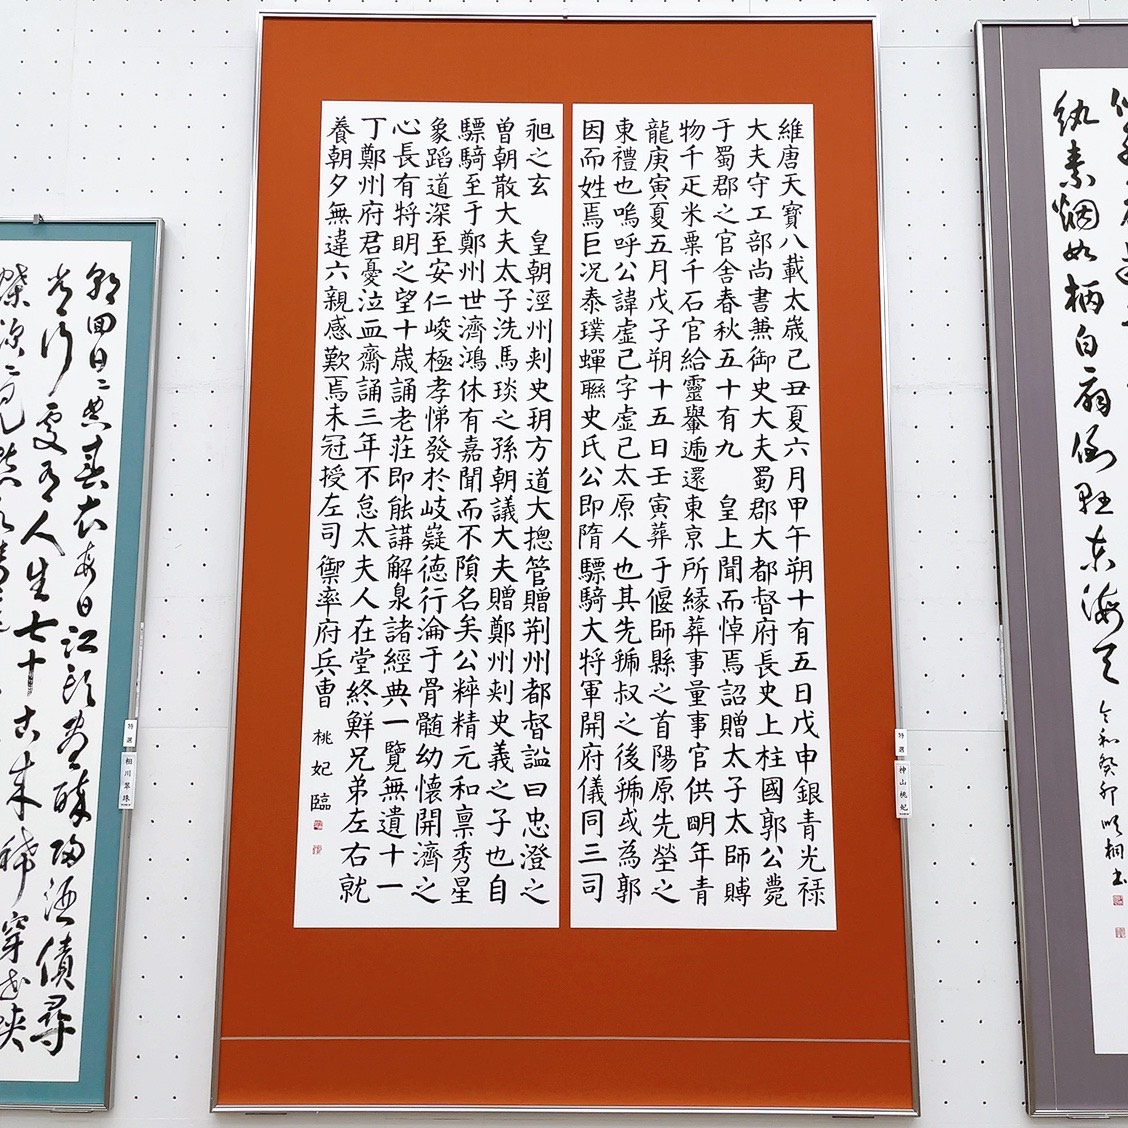 紈素烟如柄白扇倒懸東海天
令和癸卯 順桐書
維唐天寶八載太歳己丑夏六月甲午朔十有五日戊申銀青光禄
大夫守工部尚書兼御史大夫蜀郡大都督府長史上柱國郭公薨
于蜀郡之官舎春秋五十有九　皇上聞而悼焉詔贈太子太師賻
物千疋米粟千石官給靈轝逓還東京所縁葬事量事官供明年青
龍庚寅夏五月戊子朔十五日壬寅葬于偃師縣之首陽原先塋之
東禮也嗚呼公諱虚己字虚己太原人也其先虢叔之後虢或為郭
因而姓焉巨况泰璞蟬聮史氏公即隋驃騎大将軍開府儀同三司
昶之玄　皇朝涇州刾史玥方道大揔管贈荆州都督諡曰忠澄之
曽朝散大夫太子洗馬琰之孫朝議大夫贈鄭州刾史義之子也自
驃騎至于鄭州世濟鴻休有嘉聞而不隕名矣公粹精元和禀秀星
象蹈道深至安仁峻極孝悌發於岐嶷德行淪于骨髄幼懐開濟之
心長有将明之望十歳誦老荘即能講解泉諸經典一覽無遺十一
丁鄭州府君憂泣血齋誦三年不怠太夫人在堂終鮮兄弟左右就
養朝夕無違六親感歎焉未冠授左司禦率府兵曹
桃妃臨
特選
神山桃妃
朝回日〻典春衣毎日江頭盡醉歸酒債尋
常行處有人生七十古来稀穿花蛺
蝶深〻見點水
特選
相川翠珠